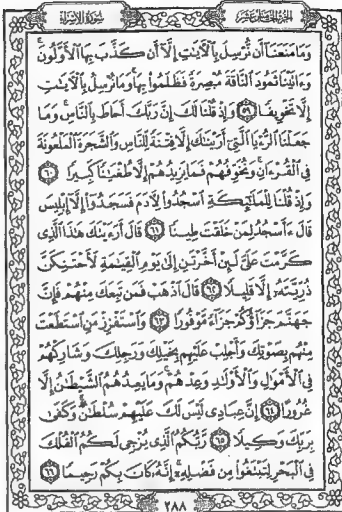 الجزء الخامس عشر
سورة الإسراء
وَمَا مَنَعَنَا أَن نُّرْسِلَ بِالْآيَاتِ إِلَّا أَن كَذَّبَ بِهَا الْأَوَّلُونَ ۚ
وَءَاتَيْنَا ثَمُودَ النَّاقَةَ مُبْصِرَةً فَظَلَمُوا بِهَا ۚ وَمَا نُرْسِلُ بِالْآيَاتِ
إِلَّا تَخْوِيفًا ٥٩ وَإِذْ قُلْنَا لَكَ إِنَّ رَبَّكَ أَحَاطَ بِالنَّاسِ ۚ وَمَا
جَعَلْنَا الرُّءْيَا الَّتِي أَرَيْنَاكَ إِلَّا فِتْنَةً لِّلنَّاسِ وَالشَّجَرَةَ الْمَلْعُونَةَ
فِي الْقُرْءَانِ ۚ وَنُخَوِّفُهُمْ فَمَا يَزِيدُهُمْ إِلَّا طُغْيَانًا كَبِيرًا ٦٠
وَإِذْ قُلْنَا لِلْمَلَائِكَةِ اسْجُدُوا لِآدَمَ فَسَجَدُوا إِلَّا إِبْلِيسَ
قَالَ ءَأَسْجُدُ لِمَنْ خَلَقْتَ طِينًا ٦١ قَالَ أَرَءَيْتَكَ هَٰذَا الَّذِي
كَرَّمْتَ عَلَيَّ لَئِنْ أَخَّرْتَنِ إِلَىٰ يَوْمِ الْقِيَامَةِ لَأَحْتَنِكَنَّ
ذُرِّيَّتَهُ إِلَّا قَلِيلًا ٦٢ قَالَ اذْهَبْ فَمَن تَبِعَكَ مِنْهُمْ فَإِنَّ
جَهَنَّمَ جَزَاؤُكُمْ جَزَاءً مَّوْفُورًا ٦٣ وَاسْتَفْزِزْ مَنِ اسْتَطَعْتَ
مِنْهُم بِصَوْتِكَ وَأَجْلِبْ عَلَيْهِم بِخَيْلِكَ وَرَجِلِكَ وَشَارِكْهُمْ
فِي الْأَمْوَالِ وَالْأَوْلَادِ وَعِدْهُمْ ۚ وَمَا يَعِدُهُمُ الشَّيْطَانُ إِلَّا
غُرُورًا ٦٤ إِنَّ عِبَادِي لَيْسَ لَكَ عَلَيْهِمْ سُلْطَانٌ ۚ وَكَفَىٰ
بِرَبِّكَ وَكِيلًا ٦٥ رَّبُّكُمُ الَّذِي يُزْجِي لَكُمُ الْفُلْكَ
فِي الْبَحْرِ لِتَبْتَغُوا مِن فَضْلِهِ ۚ إِنَّهُ كَانَ بِكُمْ رَحِيمًا ٦٦
٢٨٨